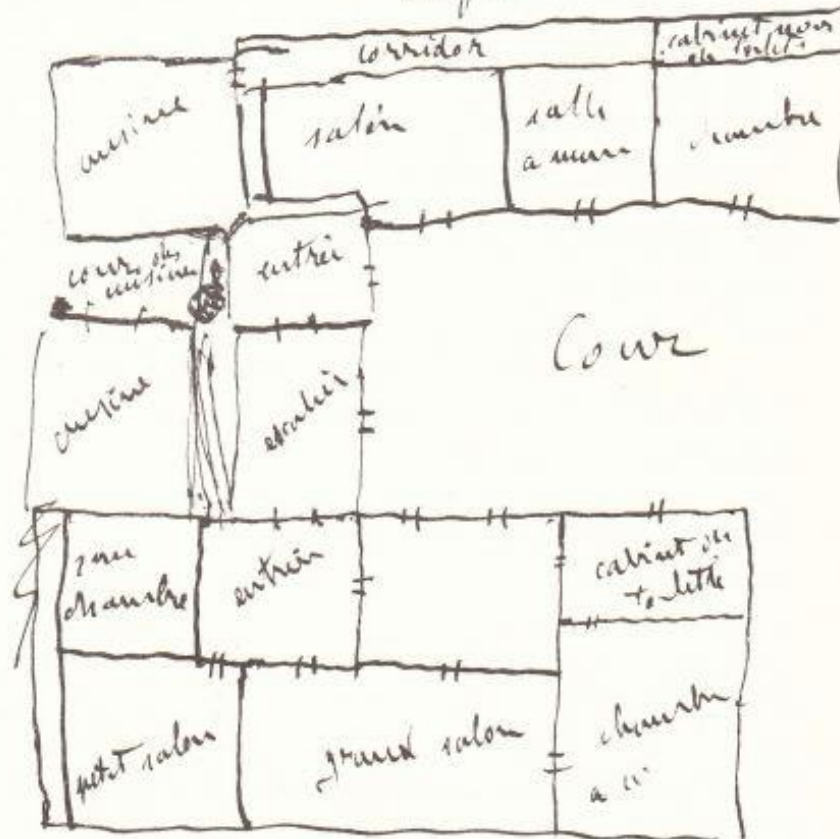 corridor
cabinet noir
de toilette
cuisine
salon
salle
a
chambre
cour des
cuisines
entrée
Cour
cuisine
escalier
chambre
entrée
cabinet de
toilette
petit salon
grand salon
chambre
a